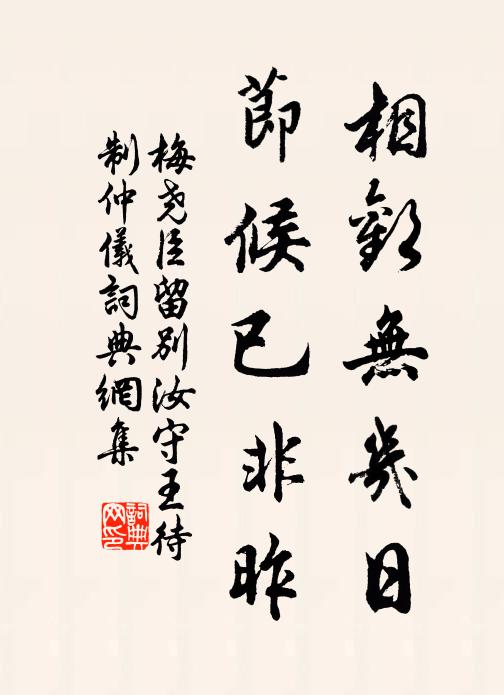 相歡無幾日
節候已非昨
梅堯臣留別汝守王待
制仲儀詞典網集
詞典
网印